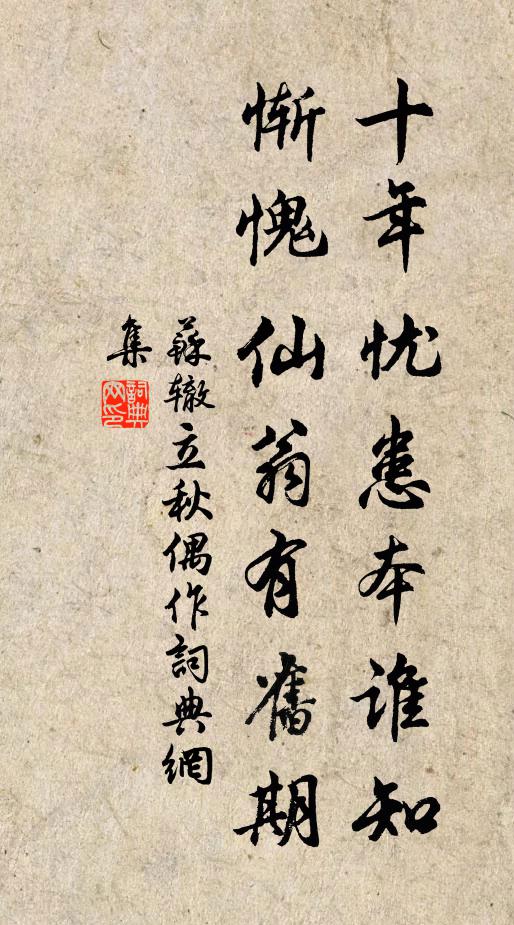 十年忧患本谁知
惭愧仙翁有舊期
蘇辙立秋偶作詞典網
集
詞典
网印